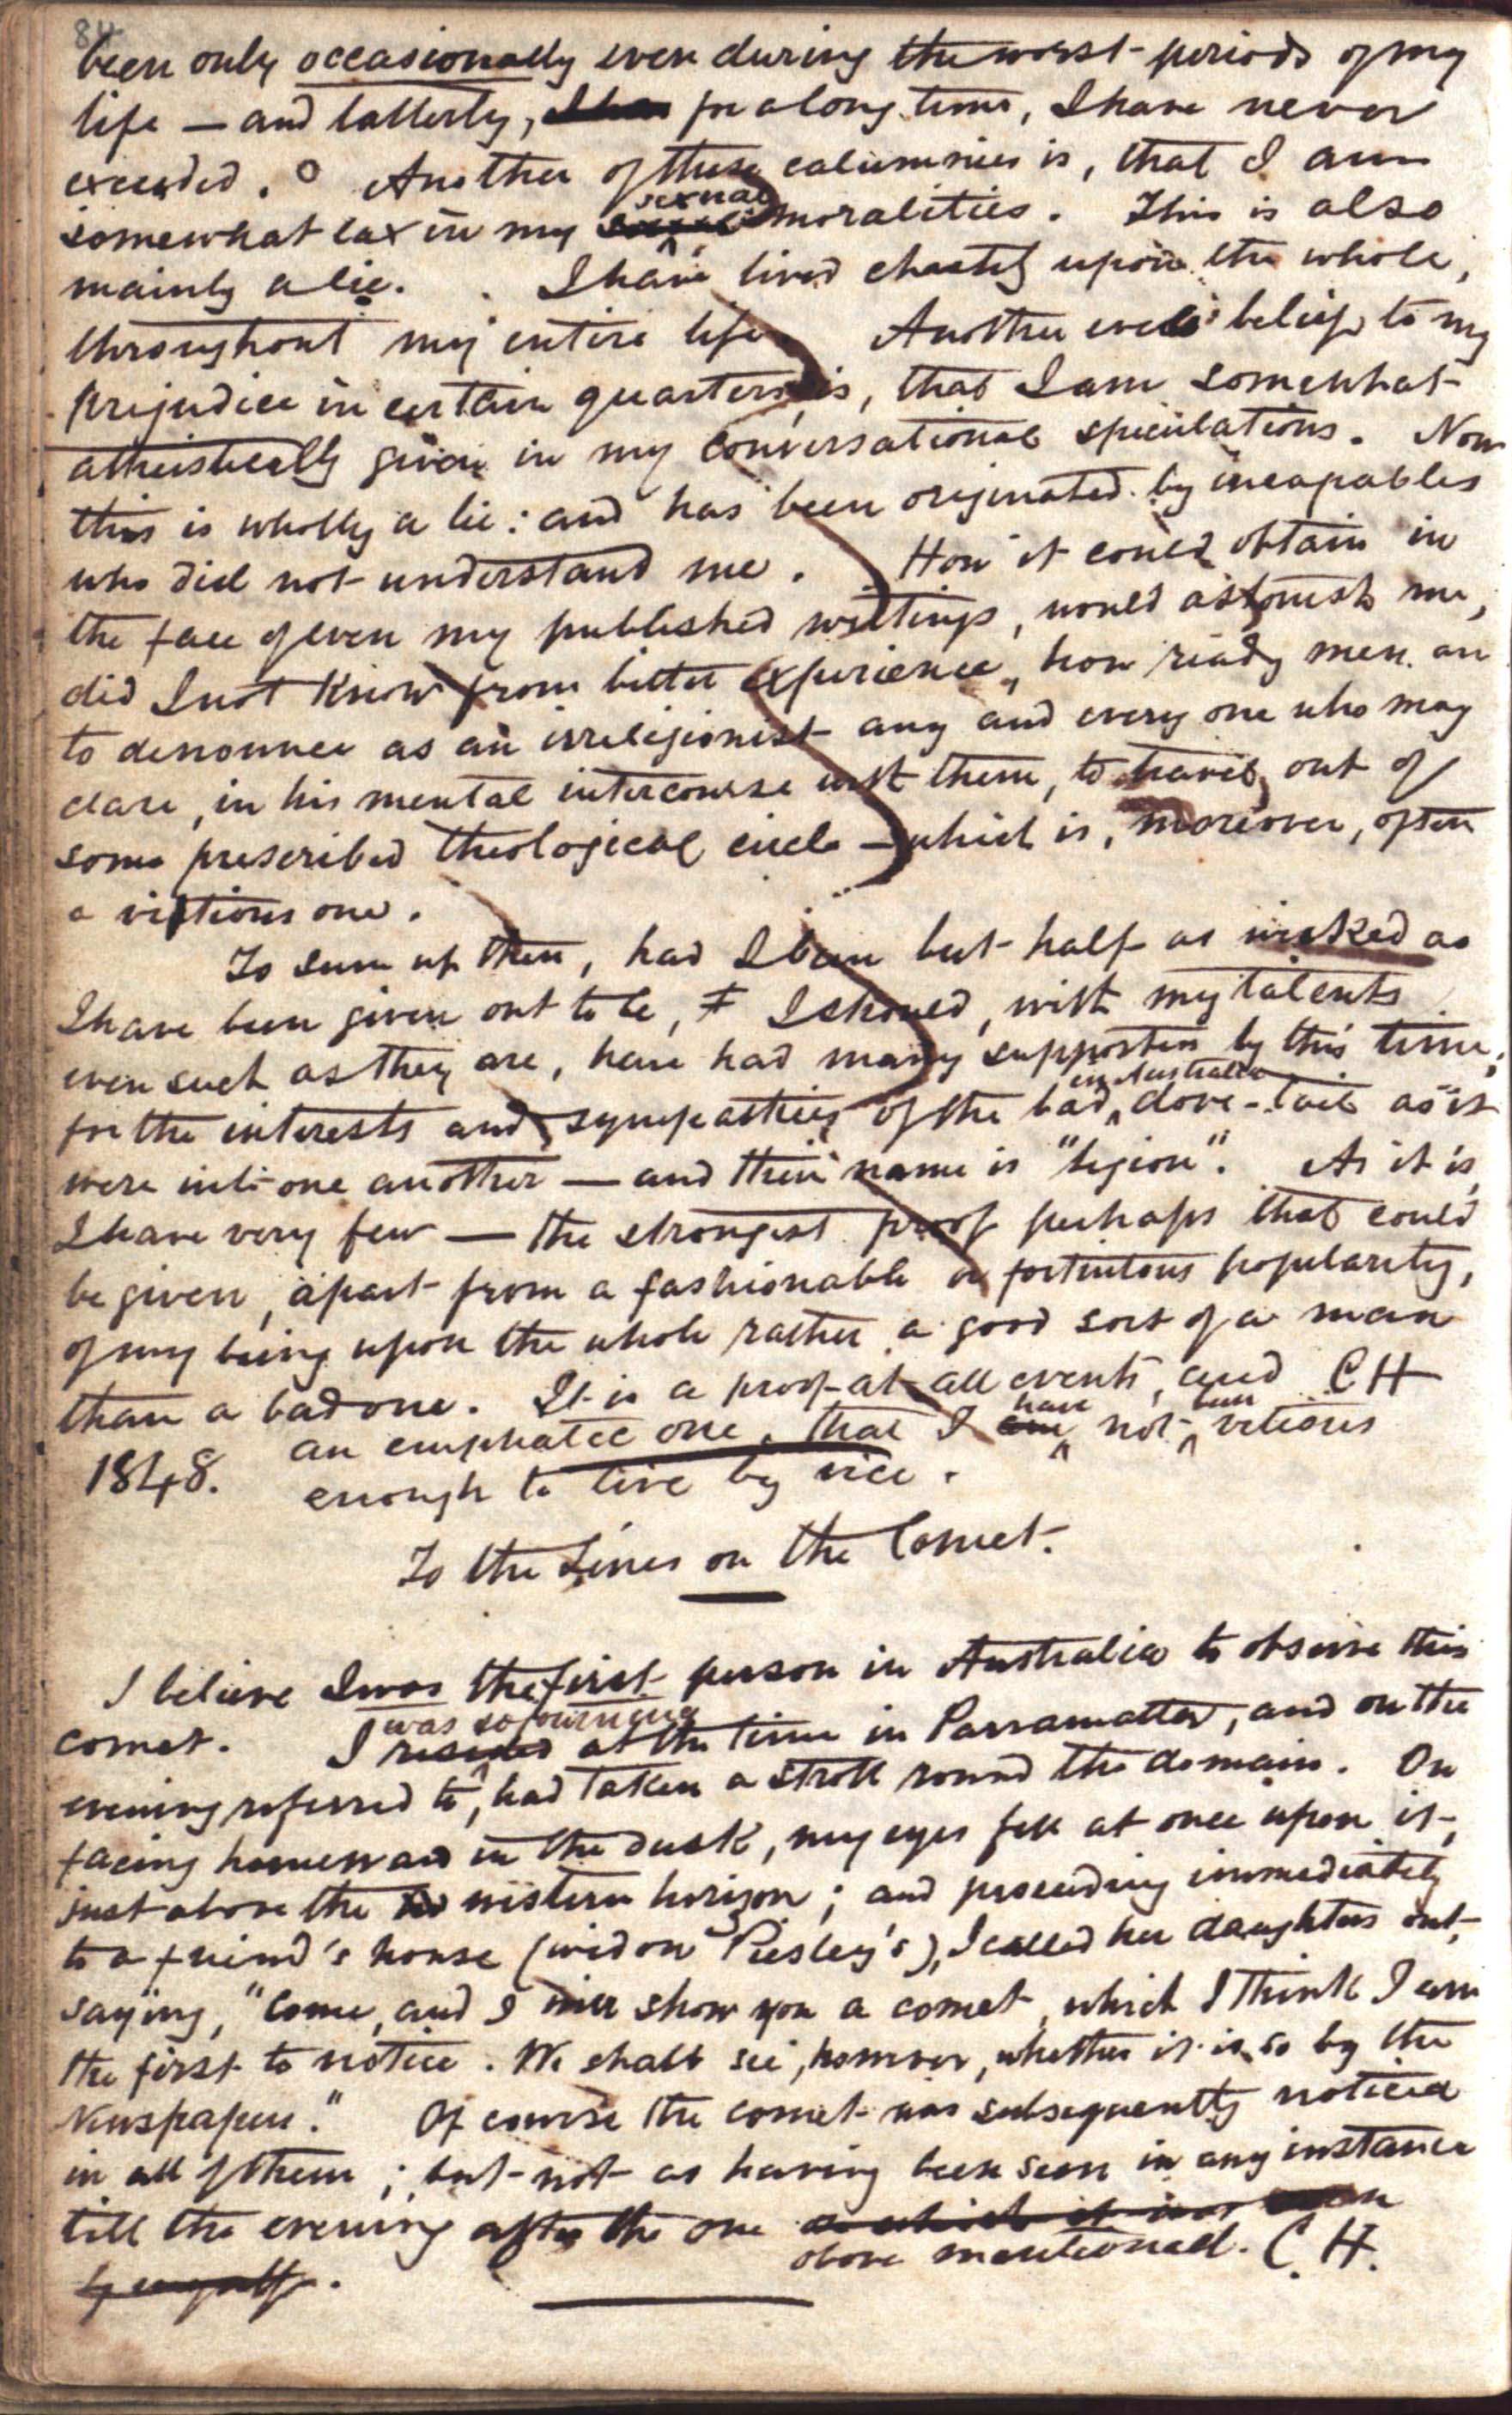 84
been only occasionally even during the worst periods of my
life — and latterly, I have for a long time, I have never
exceeded. Another of these calumnies is, that I am
somewhat lax in my sexual moralities. This is also
mainly a lie. I have lived chastely upon the whole,
throughout my entire life. Another evil belief, to my
prejudice in certain quarters, is, that I am somewhat
atheistically given in my conversational speculations. Now
this is wholly a lie: and has been originated by incapables
who did not understand me. How it could obtain in
the face of even my published writings, would astonish me,
did I not know from bitter experience, how ready men are
to denounce as an irreligionist any and every one who may
dare, in his mental intercourse with them, to travel out of
some prescribed theological circle — which is, moreover, often
a vitious one.
To sum up then, had I been but half as wicked as
I have been given out to be, I should, with my talents
even such as they are, have had many supporters by this time;
for the interests and sympathies of the bad in Australia dove-tail as it
were into one another — and their name is "legion". As it is,
I have very few — the strongest proof perhaps that could
be given, apart from a fashionable or fortuitous popularity,
of my being upon the whole rather a good sort of a man
than a bad one. It is a proof at all events, and C H
an emphatic one, that I am have not been vitious
1848. enough to live by vice.
To the Lines on the Comet.
I believe I was the first person in Australia to observe this
comet. I resided was sojourning at the time in Parramatta, and on the
evening referred to, had taken a stroll round the domain. On
facing homeward in the dusk, my eyes fell at once upon it,
just above the western horizon; and proceeding immediately
to a friend's house (widow Piesley's), I called her daughters out,
saying, "Come, and I will show you a comet, which I think I am
the first to notice. We shall see, however, whether it is so by the
Newspapers." Of course the comet was subsequently noticed
in all of them; but not as having been seen in any instance
till the evening after the one on which it was seen
by myself. above mentioned. C. H.